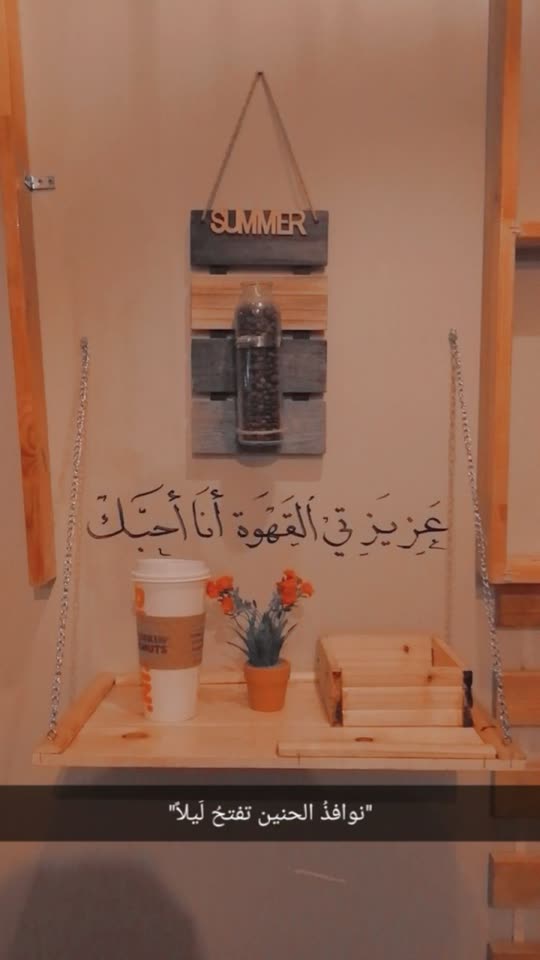 SUMMER
عَزِيزَتِي ٱلقَهْوَة أَنَا أُحِبَّكْ
DUNKIN'
DONUTS
"نوافذُ الحنين تفتحُ لَيلاً"